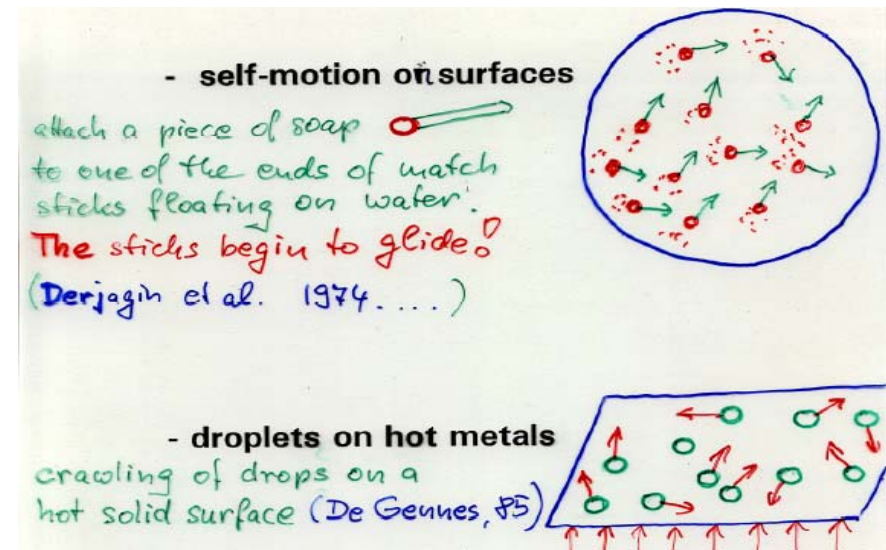 - self-motion on surfaces
attach a piece of soap
to one of the ends of match
sticks floating on water.
The sticks begin to glide!
(Derjagin et al. 1974....)
- droplets on hot metals
crawling of drops on a
hot solid surface (De Gennes, 85)